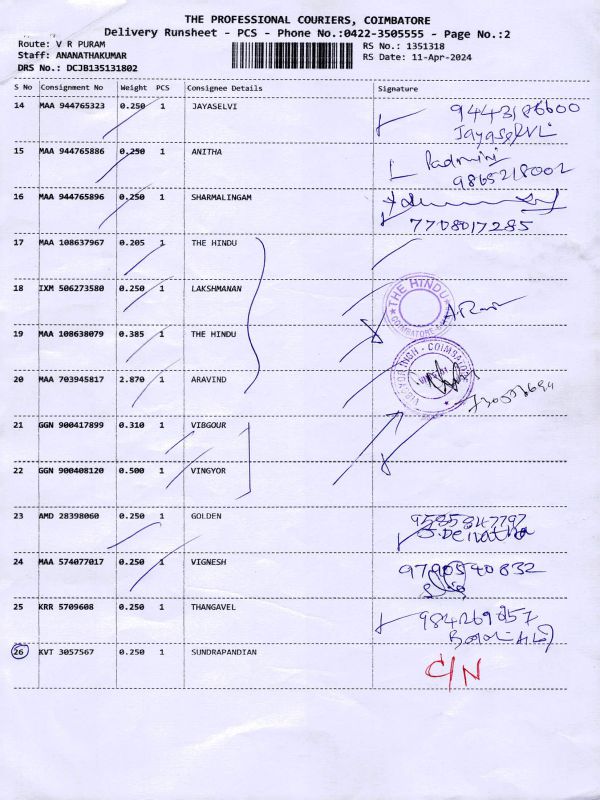 THE PROFESSIONAL COURIERS, COIMBATORE
Delivery Runsheet - PCS - Phone No.:0422-3505555 - Page No.:2
Route: V R PURAM
RS No.: 1351318
Staff: ANANATHAKUMAR
RS Date: 11-Apr-2024
DRS No.: DCJB135131802
S No Consignment No Weight PCS Consignee Details Signature
14 MAA 944765323 0.250 1 JAYASELVI
9443186600
Jayaselvi
15 MAA 944765886 0.250 1 ANITHA
Padmini
9865218002
16 MAA 944765896 0.250 1 SHARMALINGAM
7708017285
17 MAA 108637967 0.205 1 THE HINDU
18 IXM 506273580 0.250 1 LAKSHMANAN
THE HINDU
COIMBATORE
19 MAA 108638079 0.385 1 THE HINDU
20 MAA 703945817 2.870 1 ARAVIND
21 GGN 900417899 0.310 1 VIBGOUR
22 GGN 900408120 0.500 1 VINGYOR
23 AMD 28398060 0.250 1 GOLDEN
9585847797
24 MAA 574077017 0.250 1 VIGNESH
9790540832
25 KRR 5709608 0.250 1 THANGAVEL
26 KVT 3057567 0.250 1 SUNDRAPANDIAN
C/N